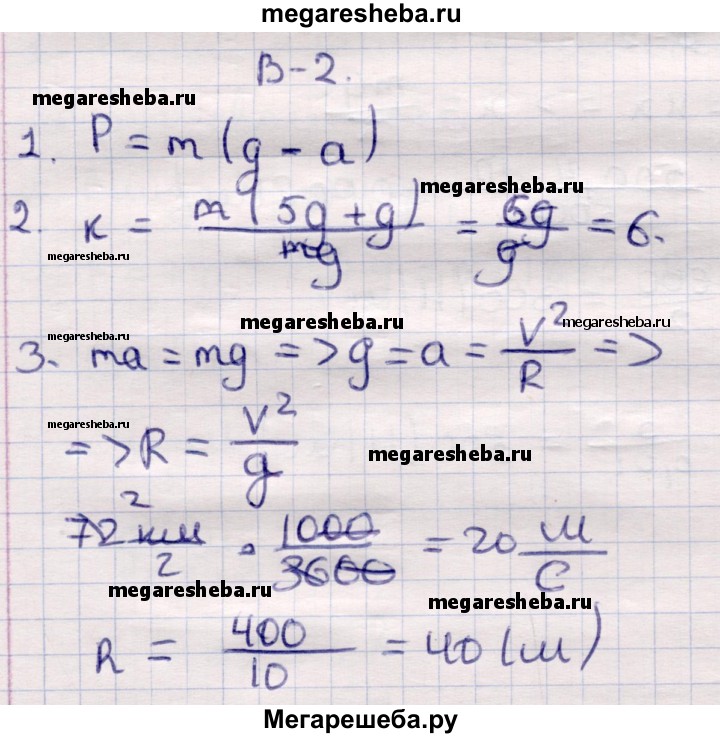 megaresheba.ru
В-2.
megaresheba.ru
1. P = m(g - a)
megaresheba.ru
2. к = m(5g + g) / mg = 6g / g = 6.
megaresheba.ru
megaresheba.ru
megaresheba.ru
megaresheba.ru
3. ma = mg => g = a = V² / R =>
megaresheba.ru
=> R = V² / g
megaresheba.ru
2
72 км / 2 · 1000 / 3600 = 20 м / с
megaresheba.ru
megaresheba.ru
R = 400 / 10 = 40 (м)
Мегарешеба.ру